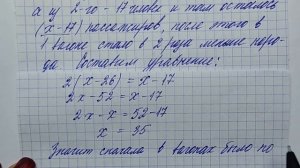 а из 2-го - 17 человек и там осталось
(x-17) пассажиров, после этого в
1 вагоне стало в 2 раза меньше наро-
да. Составим уравнение:
2(x-26) = x-17
2x-52 = x-17
2x-x = 52-17
x = 35
Значит сначала в вагонах было по